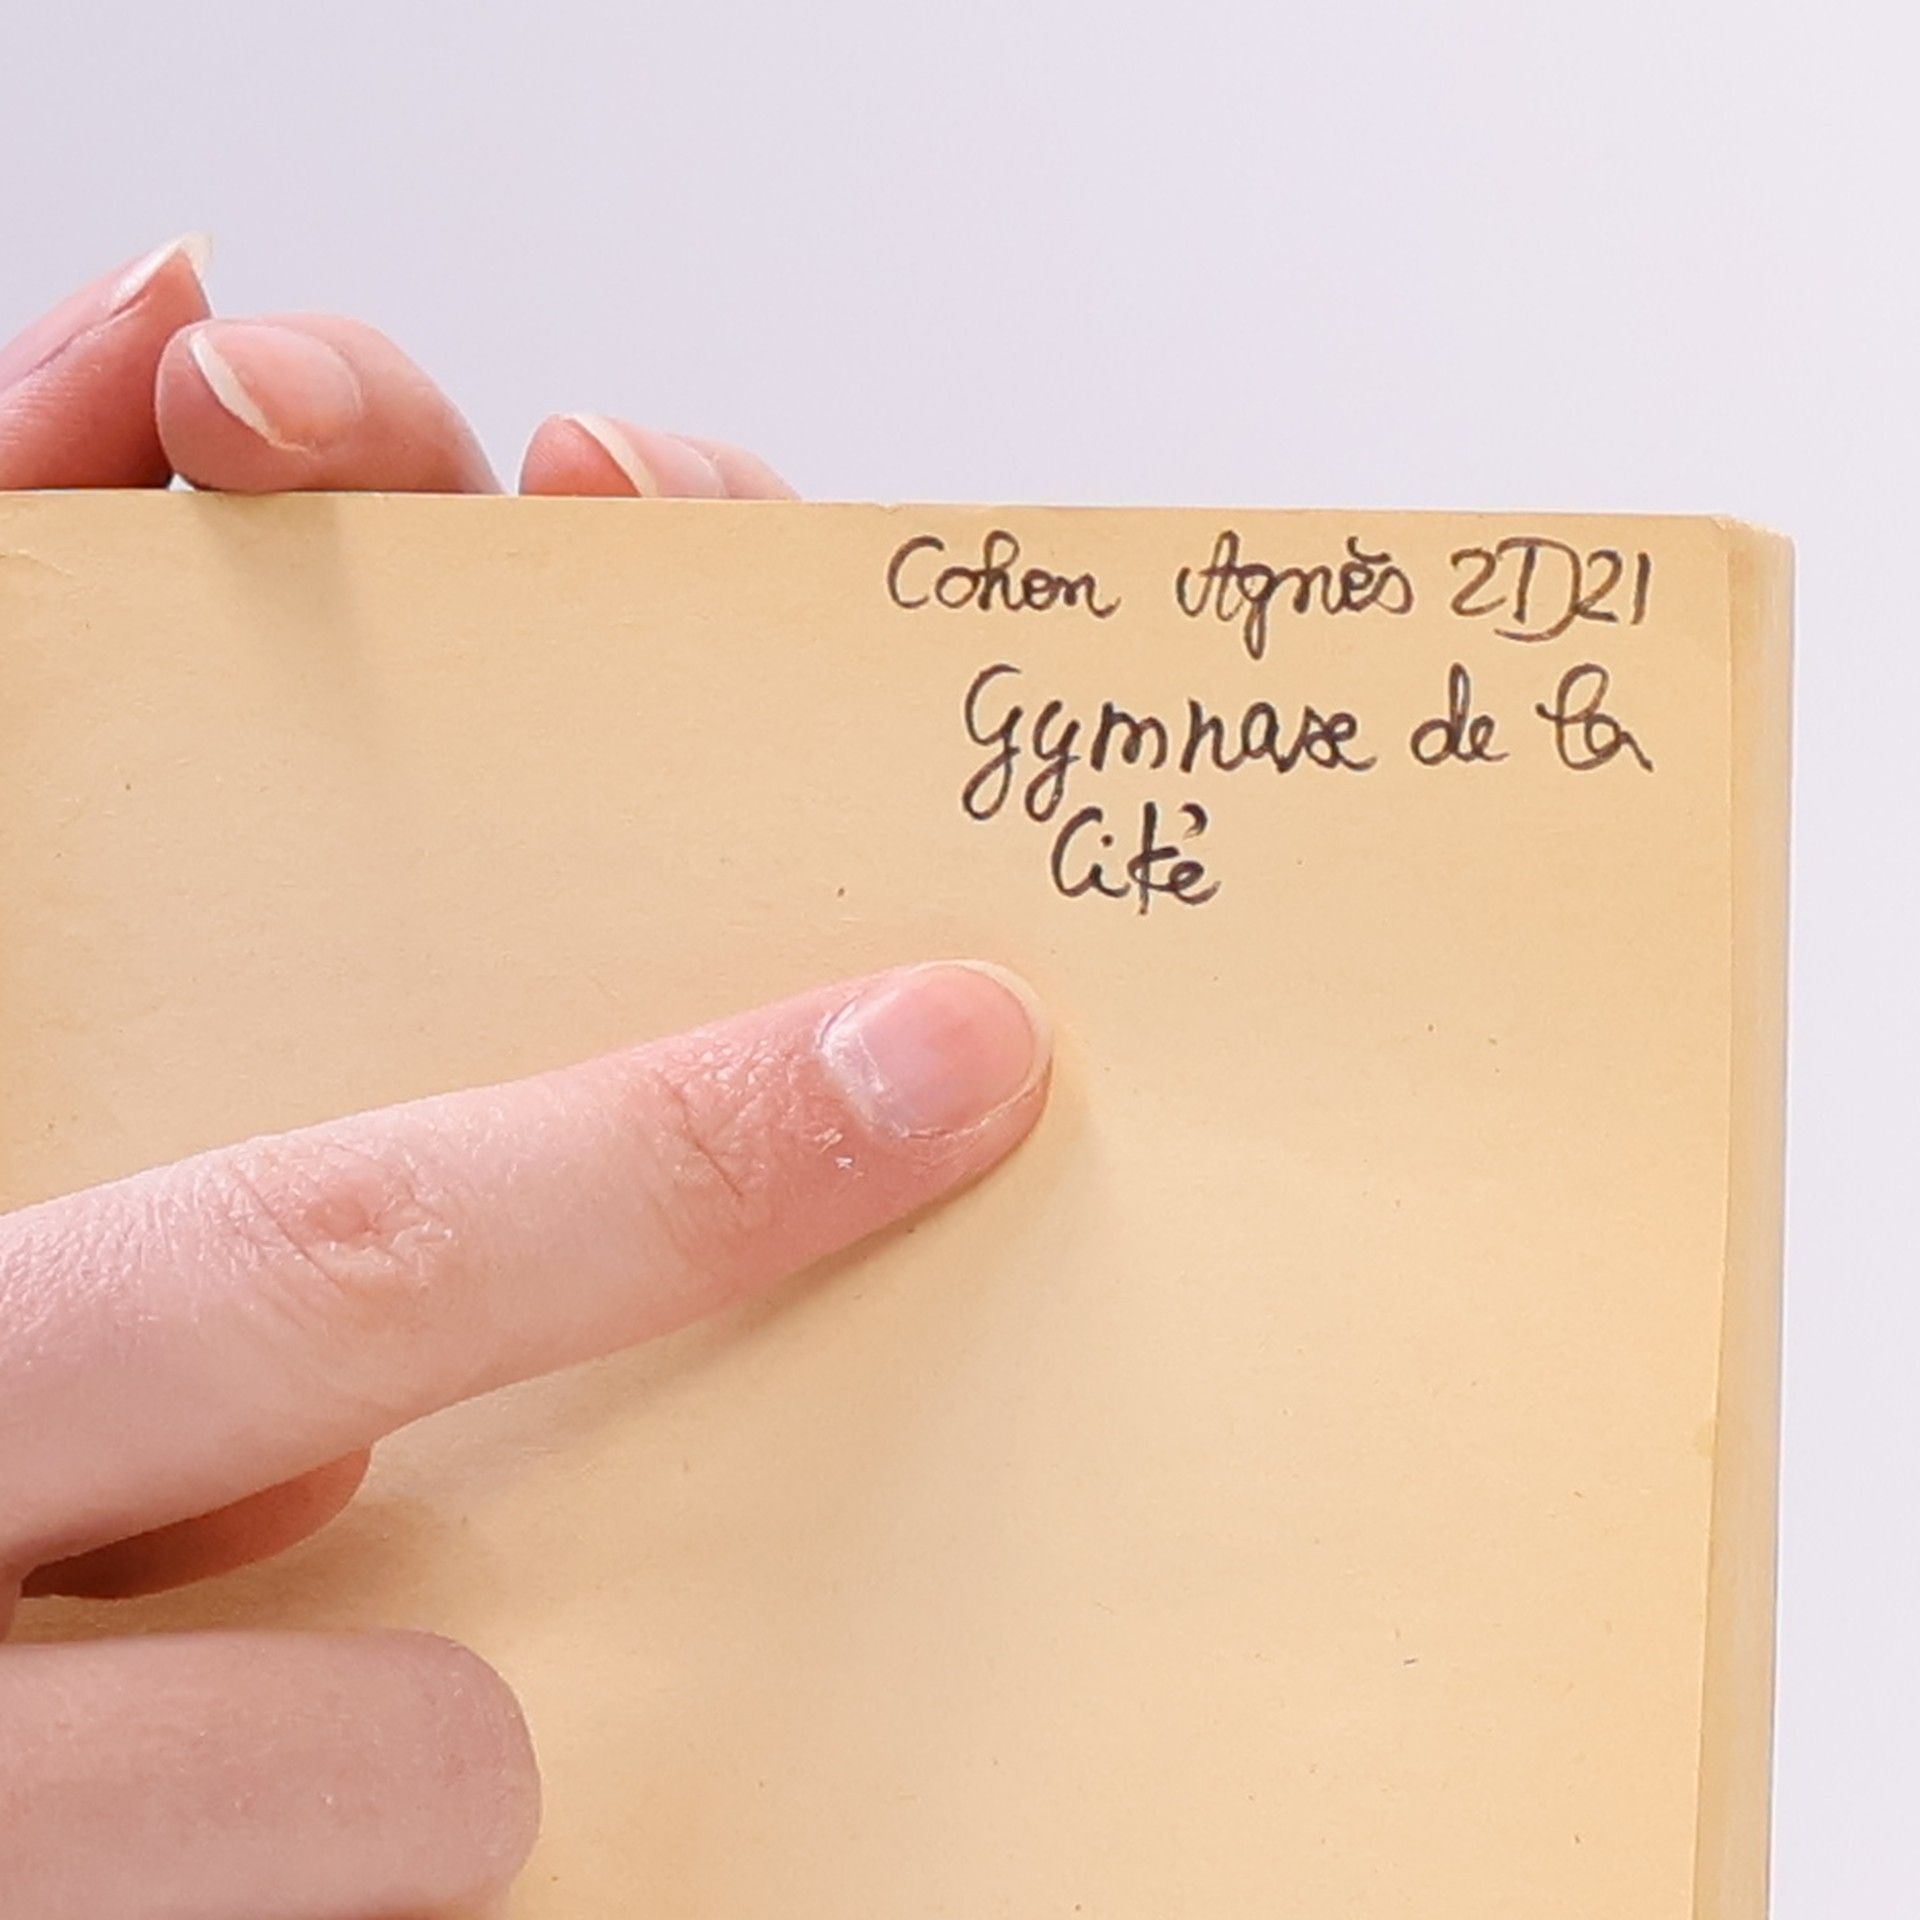 Cohen Agnès 2D21
Gymnase de la
Cité